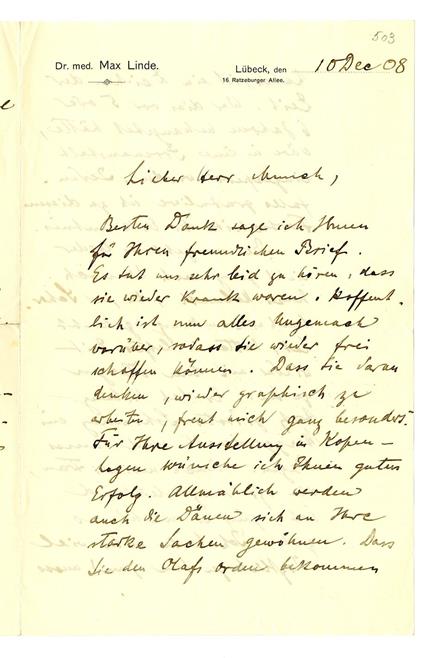 503
Dr. med. Max Linde.
Lübeck, den 10 Dec 08
16 Ratzeburger Allee.
Lieber Herr Munch,
Besten Dank sage ich Ihnen
für Ihren freundlichen Brief.
Es tut uns sehr leid zu hören, dass
sie wieder krank waren. Hoffent-
lich ist nun alles Ungemach
vorüber, sodass Sie wieder frei
schaffen können. Dass Sie daran
denken, wieder graphisch zu
arbeiten, freut mich ganz besonders.
Für Ihre Ausstellung in Kopen-
hagen wünsche ich Ihnen guten
Erfolg. Allmählich werden
auch die Dänen sich an Ihre
starke Sachen gewöhnen. Dass
Sie den Olafs orden bekommen